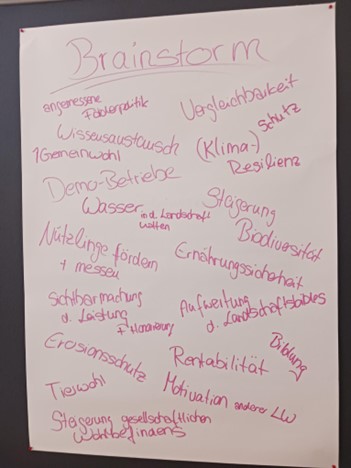 Brainstorm
angemessene
Förderpolitik
Vergleichbarkeit
Wissensaustausch
Schutz
(Klima-)
Resilienz
Gemeinwohl
Demo-Betriebe
Wasser in d. Landschaft
halten
Steigerung
Biodiversität
Nützlinge fördern
+ messen
Ernährungssicherheit
Sichtbarmachung
d. Leistung
+ Honorierung
Aufwertung
d. Landschaftsbildes
Erosionsschutz
Rentabilität
Bildung
Tierwohl
Motivation anderer LW
Steigerung gesellschaftlichen
Wohlbefindens